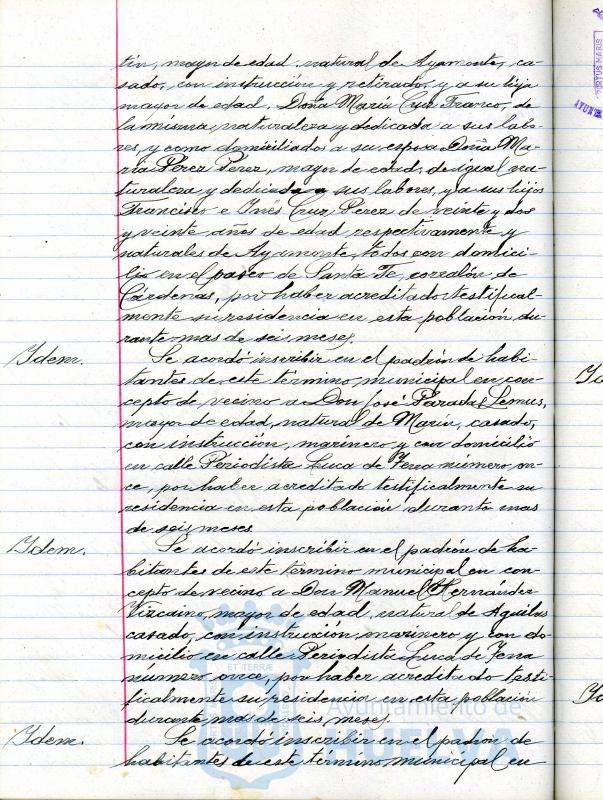 tin, mayor de edad, natural de Ayamonte, ca-
sado, con instrucción y retirado, y a su hija
mayor de edad, Doña María Cruz Franco, de
la misma naturaleza y dedicada a sus labo-
res, y como domiciliados a su esposa Doña Ma-
ría Pérez Pérez, mayor de edad, de igual na-
turaleza y dedicada a sus labores, y a sus hijos
Francisco e Inés Cruz Pérez de veinte y dos
y veinte años de edad respectivamente y
naturales de Ayamonte, todos con domici-
lio en el paseo de Santa Fe, corralón de
Cárdenas, por haber acreditado testifical-
mente su residencia en esta población du-
rante mas de seis meses.
Idem. Se acordó inscribir en el padrón de habi-
tantes de este término municipal en con-
cepto de vecino a Don José Paradas Lemus,
mayor de edad, natural de Marín, casado,
con instrucción, marinero y con domicilio
en calle Periodista Luca de Tena número on-
ce, por haber acreditado testificalmente su
residencia en esta población durante mas
de seis meses
Idem. Se acordó inscribir en el padrón de ha-
bitantes de este término municipal en con-
cepto de vecino a Don Manuel Hernández
Vizcaino, mayor de edad, natural de Aguilas
casado, con instrucción, marinero y con do-
micilio en calle Periodista Luca de Tena
número once, por haber acreditado testi-
ficalmente su residencia en esta población
durante mas de seis meses.
Idem. Se acordó inscribir en el padrón de
habitantes de este término municipal en
ET TERRÆ
Ayuntamiento de
HUELVA